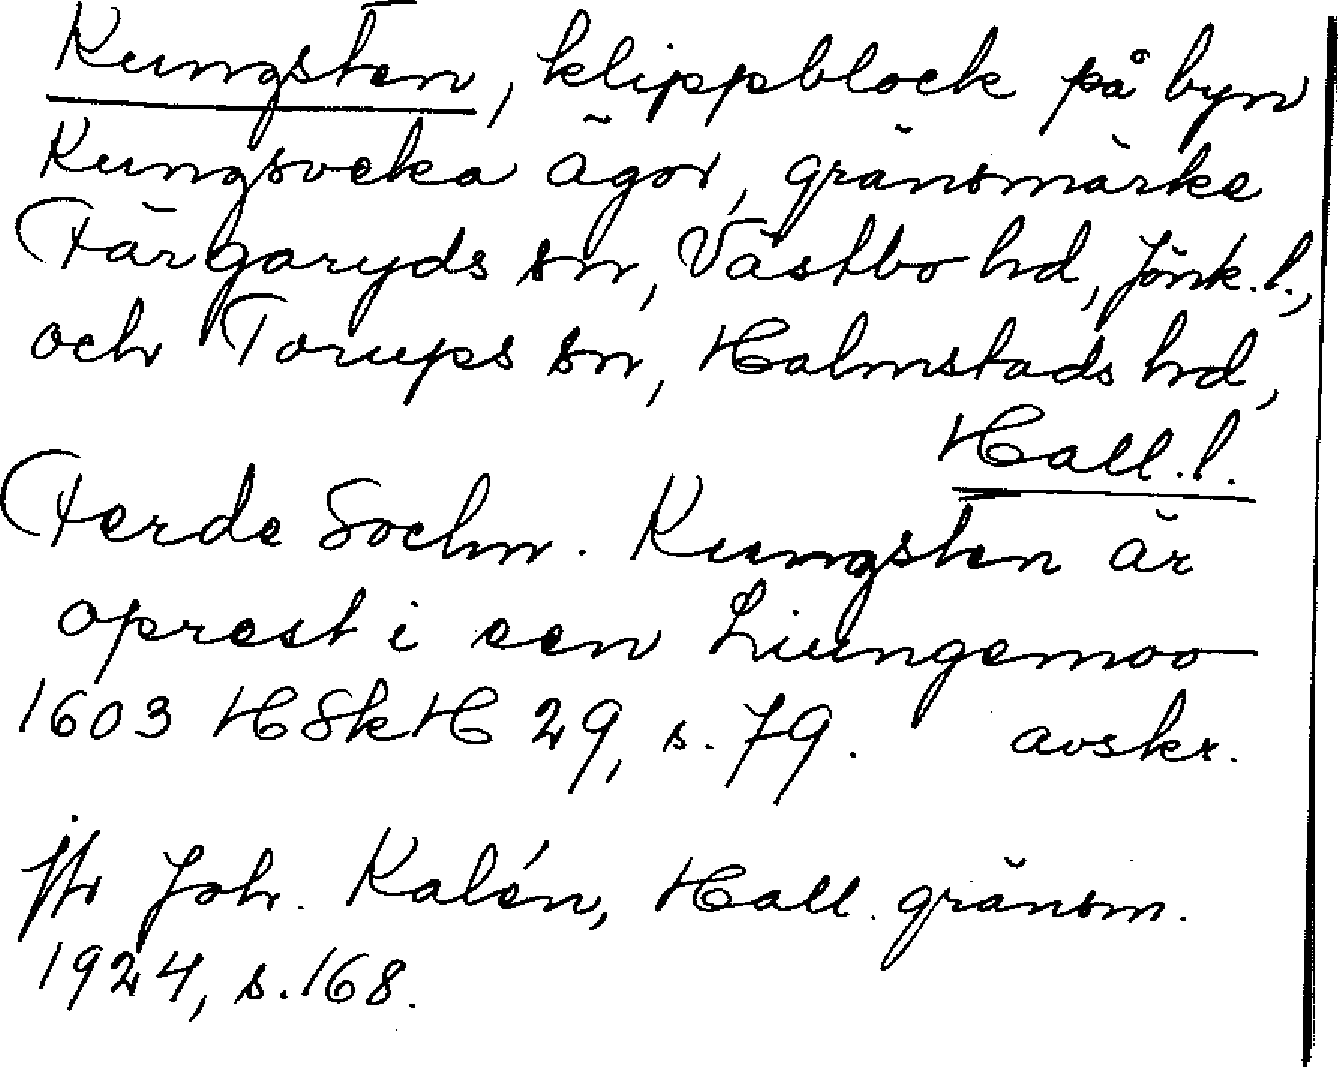 Kungsten, klippblock på byn
Kungsveka ägor, gränsmärke
Färgaryds sn, Västbo hd, Jönk. l.,
och Torups sn, Halmstads hd,
Hall. l.
Ferde Sochn. Kungsten är
oprest i een Liungemoo
1603 HSkH 29, s. 79. avskr.
jfr Joh. Kalén, Hall. gränsm.
1924, s. 168.